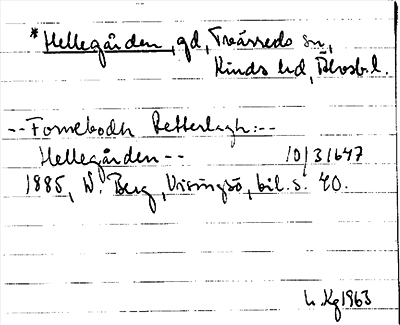 *Hellegården, gd, Tvärreds sn,
Kinds hd, Älvsb. l.
-- Fornebodh Retterlagh: --
Hellegården -- 10/3 1647
1885, W. Berg, Visingsö, bil. s. 40.
h. Kg 1963